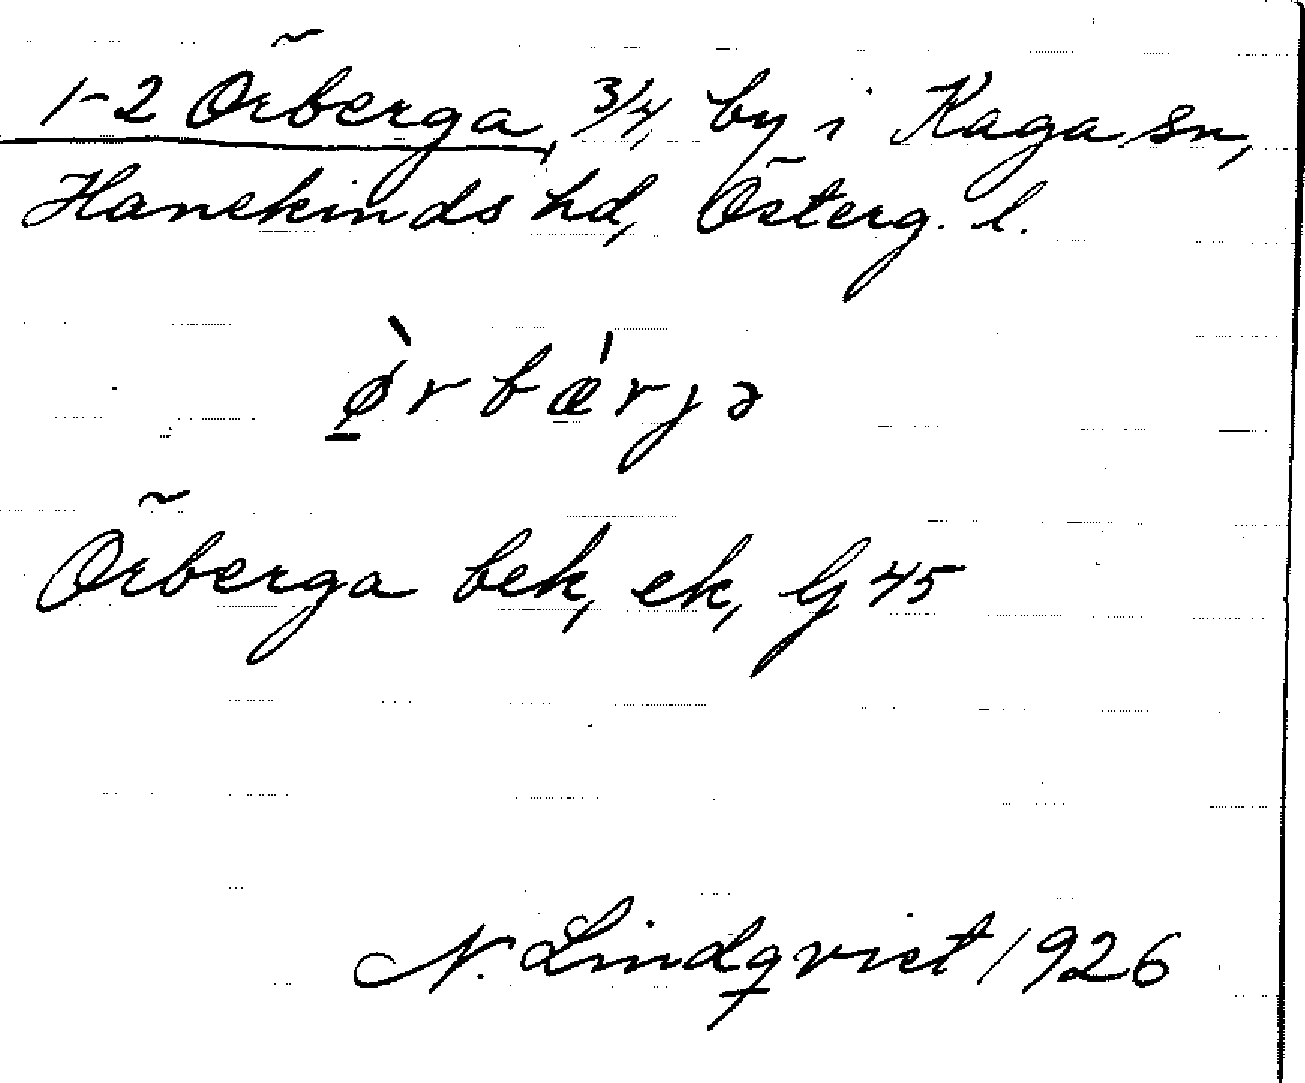 1-2 Örberga, 3/4, by i Kaga sn,
Hanekinds hd, Österg. l.
ø̀rbæ̍rjə
Örberga bek, ek, Gj 45
N. Lindqvist 1926